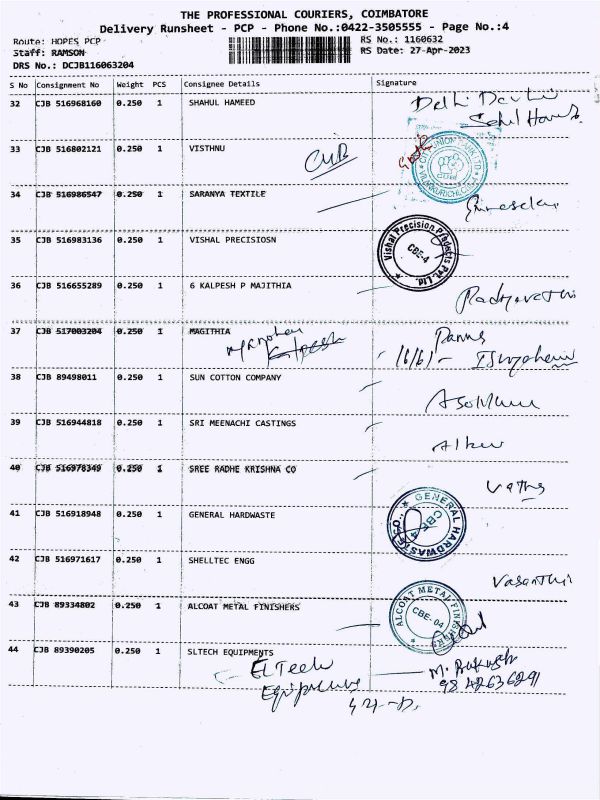 THE PROFESSIONAL COURIERS, COIMBATORE
Delivery Runsheet - PCP - Phone No.:0422-3505555 - Page No.:4
Route: HOPES PCP RS No.: 1160632
Staff: RAMSON RS Date: 27-Apr-2023
DRS No.: DCJB116063204
S No Consignment No Weight PCS Consignee Details Signature
32 CJB 516968160 0.250 1 SHAHUL HAMEED
33 CJB 516802121 0.250 1 VISTHNU
CUB
CITY UNION BANK LTD
34 CJB 516986547 0.250 1 SARANYA TEXTILE
35 CJB 516983136 0.250 1 VISHAL PRECISIOSN
Vishal Precision Products Pvt. Ltd.
CBE-4
36 CJB 516655289 0.250 1 6 KALPESH P MAJITHIA
37 CJB 517003204 0.250 1 MAGITHIA
38 CJB 89498011 0.250 1 SUN COTTON COMPANY
39 CJB 516944818 0.250 1 SRI MEENACHI CASTINGS
40 CJB 516978349 0.250 1 SREE RADHE KRISHNA CO
41 CJB 516918948 0.250 1 GENERAL HARDWASTE
GENERAL HARDWASTE
CBE-4
42 CJB 516971617 0.250 1 SHELLTEC ENGG
Vasanthi
43 CJB 89334802 0.250 1 ALCOAT METAL FINISHERS
ALCOAT METAL FINISHERS
CBE-04
44 CJB 89390205 0.250 1 SLTECH EQUIPMENTS
ELTech
Equipments
9842636291